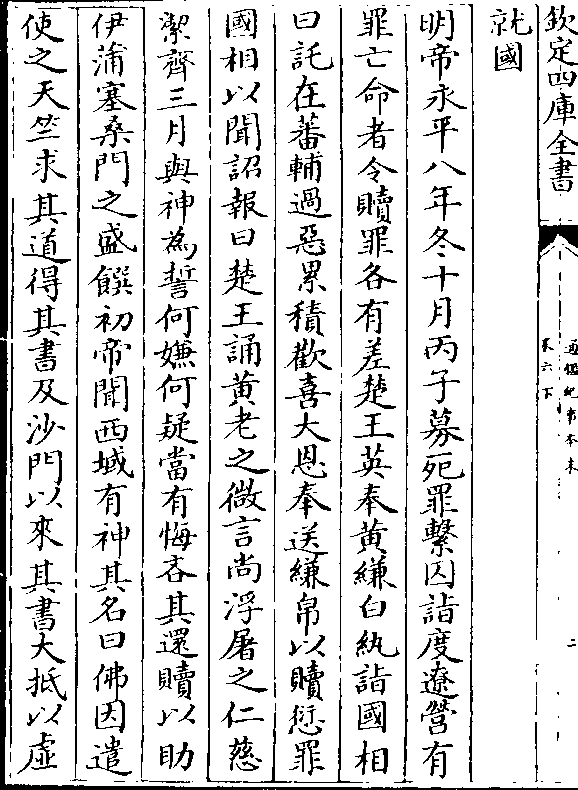 欽定四庫全書
通鑑紀事本末
卷六下
二
就國
明帝永平八年冬十月丙子募死罪繫囚詣度遼營有
罪亡命者令贖罪各有差楚王英奉黄縑白紈詣國相
曰託在蕃輔過惡累積歡喜大恩奉送縑帛以贖愆罪
國相以聞詔報曰楚王誦黄老之微言尚浮屠之仁慈
潔齊三月與神為誓何嫌何疑當有悔吝其還贖以助
伊蒲塞桑門之盛饌初帝聞西域有神其名曰佛因遣
使之天竺求其道得其書及沙門以來其書大抵以虛